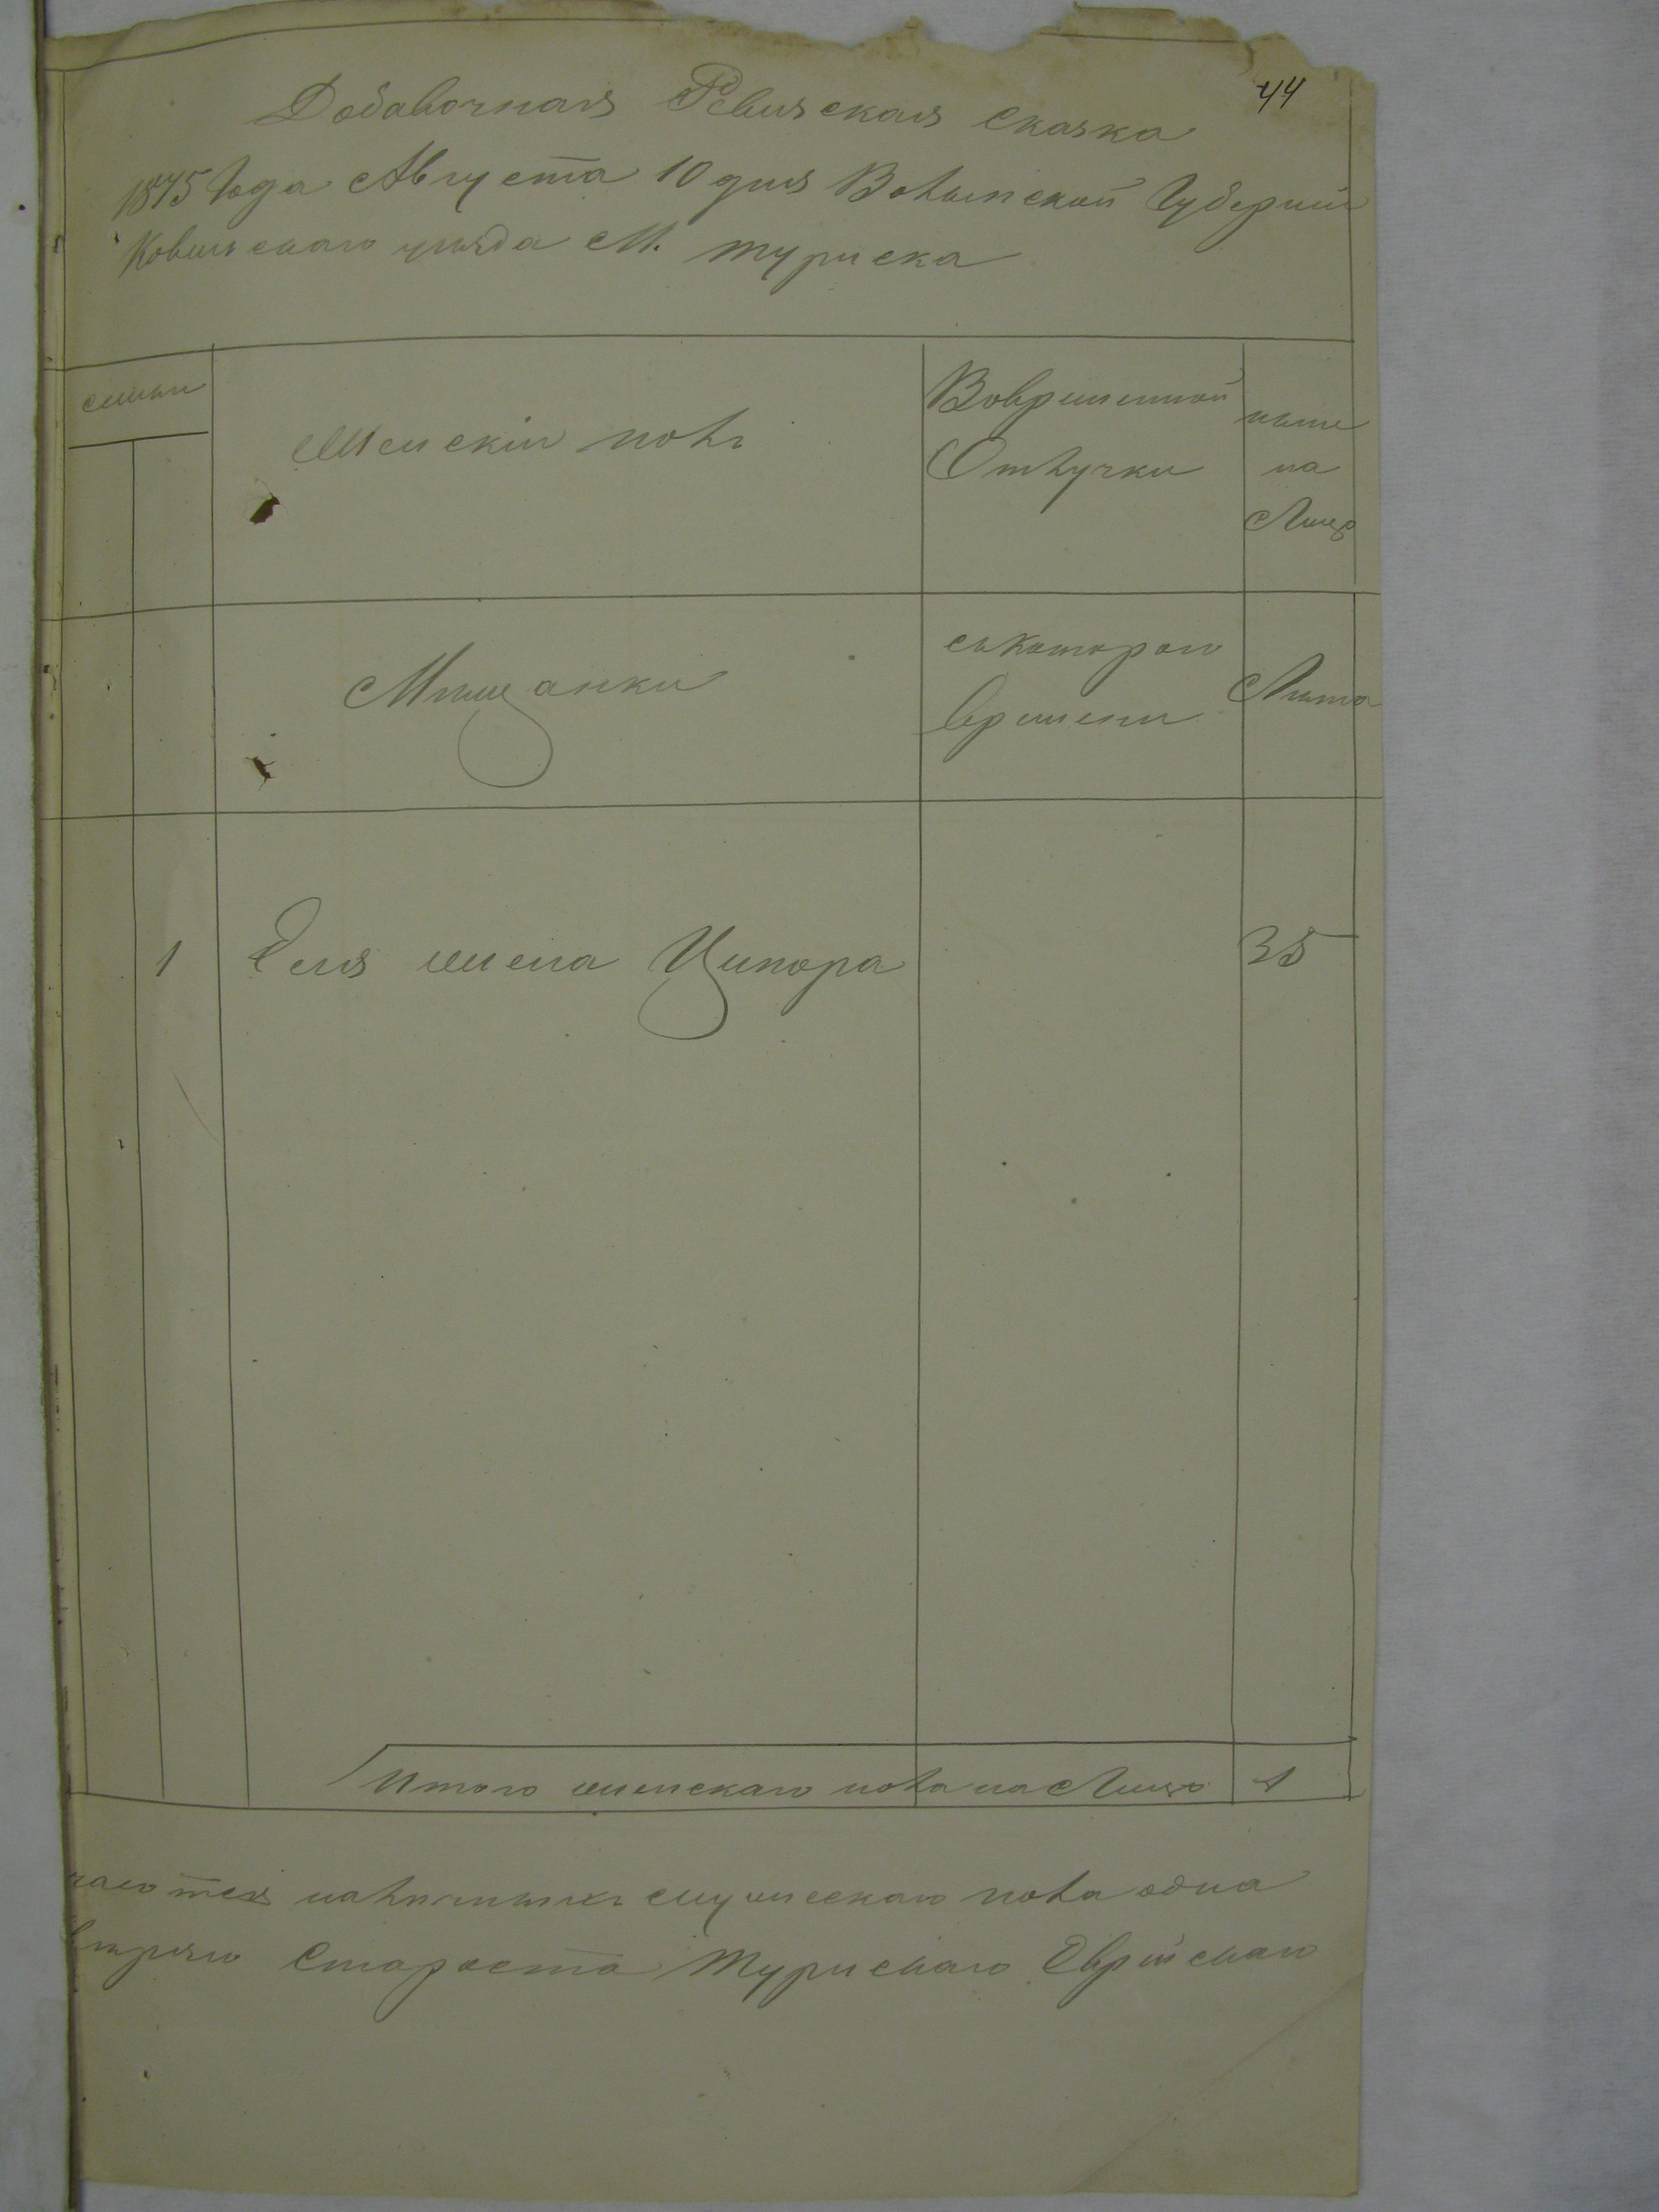 44
Добавочная Ревизская Сказка
1875 Года Августа 10 дня Волынской Губернии
Ковельскаго уезда М. Туриска
семьи
Женский полъ
Вовременной
Отлучки
ныне
на
Лицо
Мещанки
съкотораго
времени
Лета
1 Его жена Ципора 35
Итого женскаго пола на Лицо 1
налично мужескаго пола одна
Староста Турискаго Еврейскаго